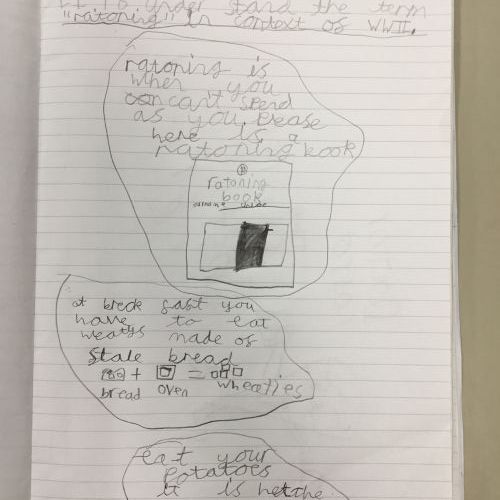 LI To under stand the term
"ratoning" in context of WWII.
ratoning is
when you
can't spend
as you please
here is a
ratoning book
ratoning
book
at breck fast you
have to eat
weatys made of
Stale bread
+ =
bread oven wheaties
eat your
potatoes
it is